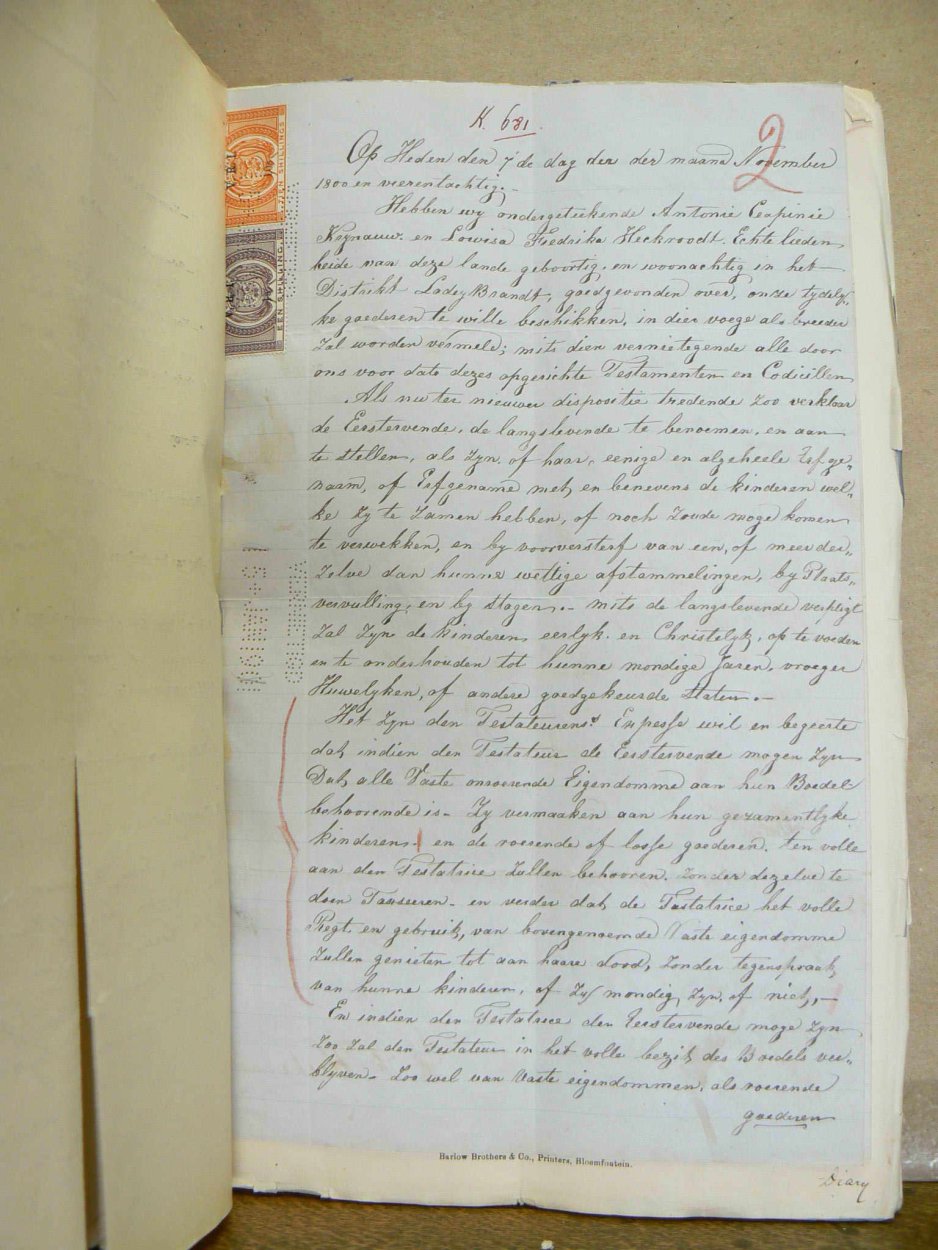 K. 681.
2
Op Heden den 7'de dag der der maand November
1800 en vierentachtig.-
Hebben wy ondergeteekende Antonie
Keynauw. en Lowisa Fredrika Heckroodt. Echte lieden
beide van deze lande geboortig, en woonachtig in het
Distrikt Ladey Brandt, goedgevonden over, onze tydely-
ke goederen te wille beschikken, in dier voege als breeder
Zal worden vermeld; mits dien vernietegende alle door
ons voor dato dezes opgerichte Testamenten en Codicillen
Als nu ter nieuwer dispositie tredende Zoo verklaar
de Eerstervende, de langslevende te benoemen, en aan
te stellen, als Zyn. of haar, eenige en algeheele Erfge-
naam, of Erfgename met, en benevens de kinderen wel-
ke Zy te Zamen hebben, of noch Zoude moge komen
te verwekken, en by voorversterf van een, of meer der-
Zelve dan hunne wettige afstammelingen, by Plaats-
vervulling, en by stagen.- mits de langslevende verpligt
Zal Zyn de kinderen eerlyk. en Christelyk, op te voeden
en te onderhouden tot hunne mondige Jaren, vroeger
Huwelyken, of andere goedgekeurde Staten.-
Het Zyn den Testateurens Expesse wil en begeerte
dat, indien den Testateur de Eerstervende mogen Zyn
Dat, alle Vaste onroerende Eigendomme aan hun Boedel
behoorende is- Zy vermaaken aan hun gezamentlyke
kinderen- en de roerende of losse goederen. ten volle
aan den Testatrice Zullen behooren, Zonder dezelve te
doen Taxseeren- en verder dat, de Testatrice het volle
Regt, en gebruik, van bovengenoemde Vaste eigendomme
Zullen genieten tot aan haare dood, Zonder tegenspraak,
van hunne kinderen, of Zy mondig Zyn. of niet,-
En indien den Testatrice den Eerstervende moge Zyn
Zoo Zal den Testateur in het volle bezit, des Boedels ver-
blyven- Zoo wel van Vaste eigendommen, als roerende
goederen
Barlow Brothers & Co., Printers, Bloemfontein.
Diary
EEN SHILLING
V.R.I.